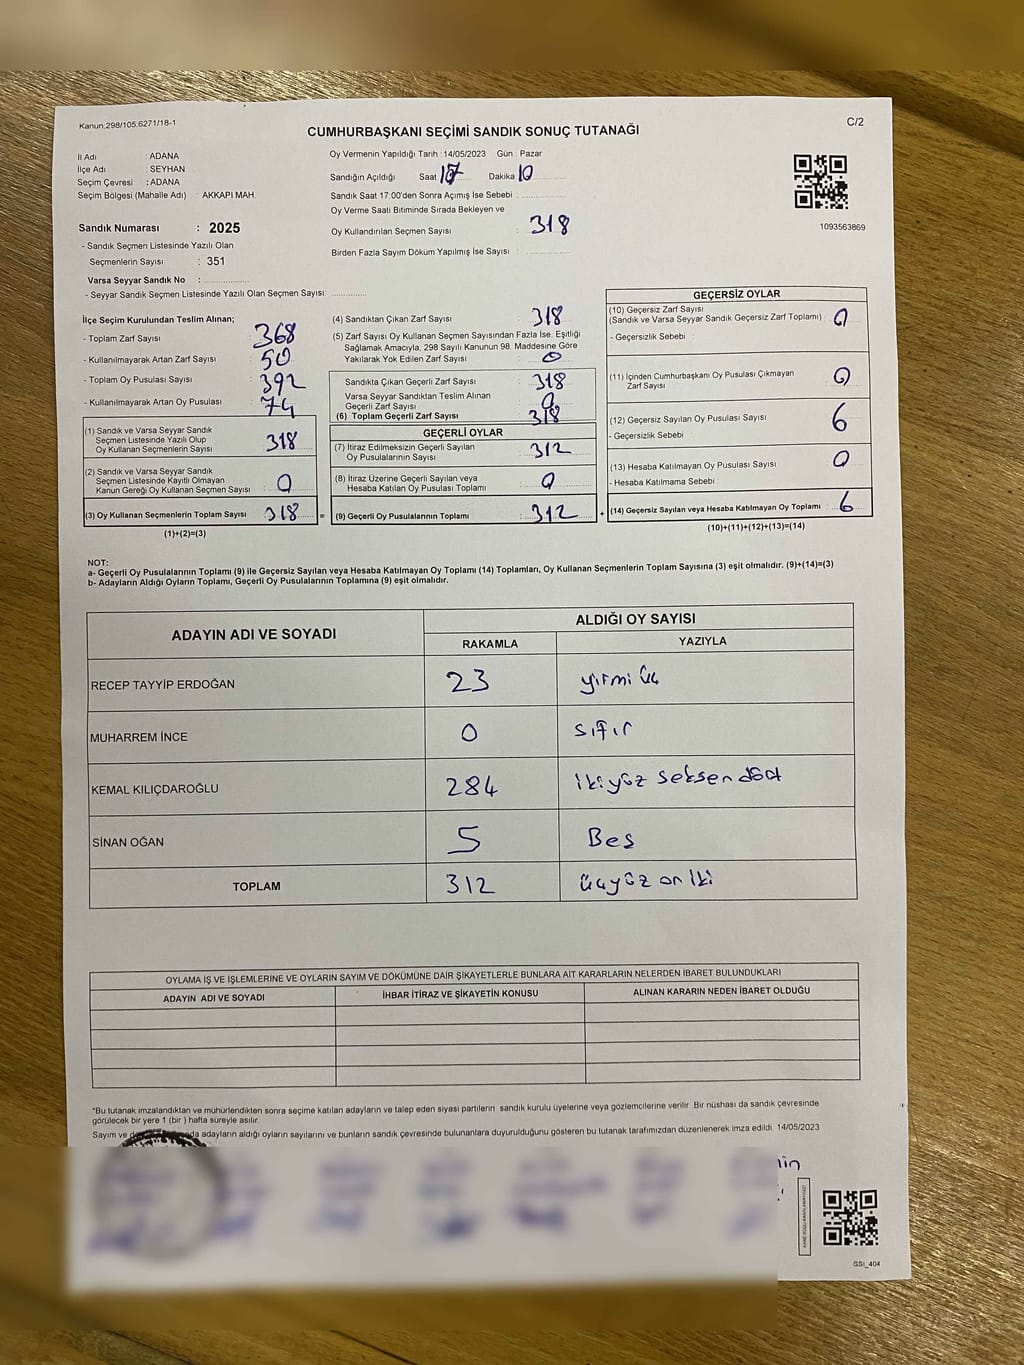 Kanun:298/105;6271/18-1
CUMHURBAŞKANI SEÇİMİ SANDIK SONUÇ TUTANAĞI
C/2
İl Adı : ADANA
İlçe Adı : SEYHAN
Seçim Çevresi : ADANA
Seçim Bölgesi (Mahalle Adı) : AKKAPI MAH.
Sandık Numarası : 2025
- Sandık Seçmen Listesinde Yazılı Olan
Seçmenlerin Sayısı : 351
Varsa Seyyar Sandık No :
- Seyyar Sandık Seçmen Listesinde Yazılı Olan Seçmen Sayısı:
Oy Vermenin Yapıldığı Tarih :14/05/2023 Gün : Pazar
Sandığın Açıldığı Saat 17 Dakika 10
Sandık Saat 17:00'den Sonra Açımış İse Sebebi :
Oy Verme Saati Bitiminde Sırada Bekleyen ve
Oy Kullandırılan Seçmen Sayısı : 318
Birden Fazla Sayım Döküm Yapılmış İse Sayısı :
1093563869
İlçe Seçim Kurulundan Teslim Alınan;
- Toplam Zarf Sayısı : 368
- Kullanılmayarak Artan Zarf Sayısı : 50
- Toplam Oy Pusulası Sayısı : 392
- Kullanılmayarak Artan Oy Pusulası : 74
(1) Sandık ve Varsa Seyyar Sandık
Seçmen Listesinde Yazılı Olup
Oy Kullanan Seçmenlerin Sayısı : 318
(2) Sandık ve Varsa Seyyar Sandık
Seçmen Listesinde Kayıtlı Olmayan
Kanun Gereği Oy Kullanan Seçmen Sayısı : 0
(3) Oy Kullanan Seçmenlerin Toplam Sayısı : 318
(1)+(2)=(3)
(4) Sandıktan Çıkan Zarf Sayısı : 318
(5) Zarf Sayısı Oy Kullanan Seçmen Sayısından Fazla İse, Eşitliği
Sağlamak Amacıyla; 298 Sayılı Kanunun 98. Maddesine Göre
Yakılarak Yok Edilen Zarf Sayısı : 0
Sandıkta Çıkan Geçerli Zarf Sayısı : 318
Varsa Seyyar Sandıktan Teslim Alınan
Geçerli Zarf Sayısı : 0
(6) Toplam Geçerli Zarf Sayısı : 318
GEÇERLİ OYLAR
(7) İtiraz Edilmeksizin Geçerli Sayılan
Oy Pusulalarının Sayısı : 312
(8) İtiraz Üzerine Geçerli Sayılan veya
Hesaba Katılan Oy Pusulası Toplamı : 0
= (9) Geçerli Oy Pusulalarının Toplamı : 312
GEÇERSİZ OYLAR
(10) Geçersiz Zarf Sayısı
(Sandık ve Varsa Seyyar Sandık Geçersiz Zarf Toplamı) : 0
- Geçersizlik Sebebi :
(11) İçinden Cumhurbaşkanı Oy Pusulası Çıkmayan
Zarf Sayısı : 0
(12) Geçersiz Sayılan Oy Pusulası Sayısı : 6
- Geçersizlik Sebebi :
(13) Hesaba Katılmayan Oy Pusulası Sayısı : 0
- Hesaba Katılmama Sebebi :
+ (14) Geçersiz Sayılan veya Hesaba Katılmayan Oy Toplamı : 6
(10)+(11)+(12)+(13)=(14)
NOT:
a- Geçerli Oy Pusulalarının Toplamı (9) ile Geçersiz Sayılan veya Hesaba Katılmayan Oy Toplamı (14) Toplamları, Oy Kullanan Seçmenlerin Toplam Sayısına (3) eşit olmalıdır. (9)+(14)=(3)
b- Adayların Aldığı Oyların Toplamı, Geçerli Oy Pusulalarının Toplamına (9) eşit olmalıdır.
ADAYIN ADI VE SOYADI
ALDIĞI OY SAYISI
RAKAMLA YAZIYLA
RECEP TAYYİP ERDOĞAN 23 yirmi üç
MUHARREM İNCE 0 sıfır
KEMAL KILIÇDAROĞLU 284 ikiyüz seksen dört
SİNAN OĞAN 5 Beş
TOPLAM 312 üçyüz on iki
OYLAMA İŞ VE İŞLEMLERİNE VE OYLARIN SAYIM VE DÖKÜMÜNE DAİR ŞİKAYETLERLE BUNLARA AİT KARARLARIN NELERDEN İBARET BULUNDUKLARI
ADAYIN ADI VE SOYADI
İHBAR İTİRAZ VE ŞİKAYETİN KONUSU
ALINAN KARARIN NEDEN İBARET OLDUĞU
*Bu tutanak imzalandıktan ve mühürlendikten sonra seçime katılan adayların ve talep eden siyasi partilerin sandık kurulu üyelerine veya gözlemcilerine verilir. Bir nüshası da sandık çevresinde
görülecek bir yere 1 (bir) hafta süreyle asılır.
Sayım ve adayların aldığı oyların sayılarını ve bunların sandık çevresinde bulunanlara duyurulduğunu gösteren bu tutanak tarafımızdan düzenlenerek imza edildi. 14/05/2023
SSI_404